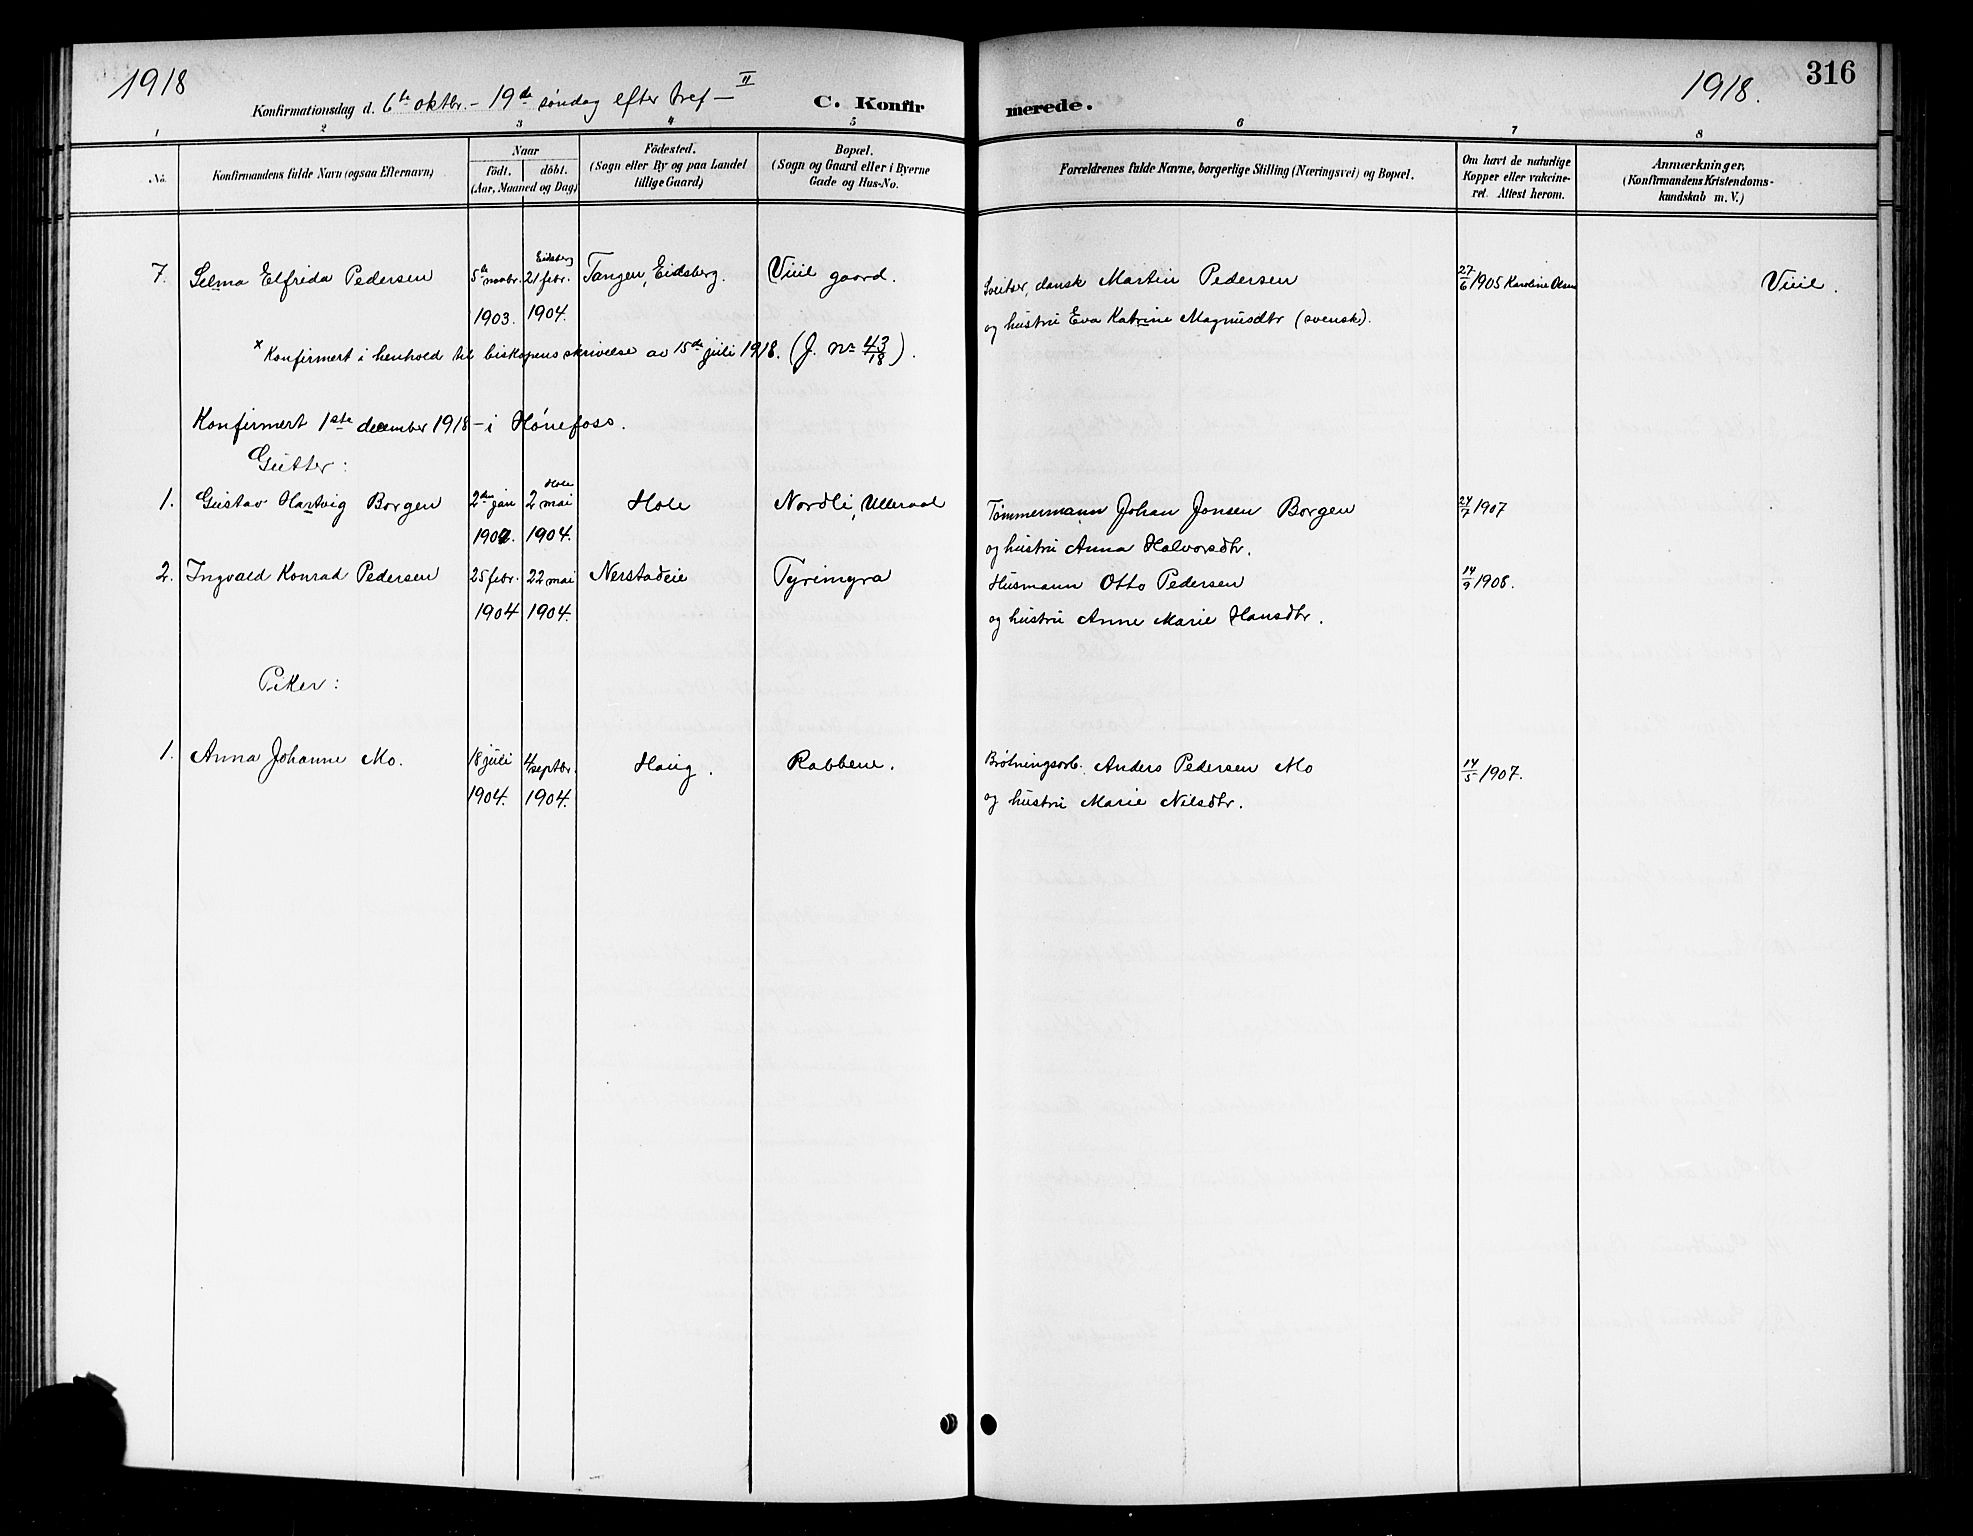 1918
Konfirmationsdag d. 6te oktbr. – 19de søndag efter tref – II
C. Konfirmerede.
1918.
316
1 2 3 4 5 6 7 8
No.
Konfirmandens fulde Navn (ogsaa Efternavn)
Naar
födt. döbt.
(Aar, Maaned og Dag)
Födested.
(Sogn eller By og paa Landet
tillige Gaard)
Bopæl.
(Sogn og Gaard eller i Byerne
Gade og Hus-No.
Forældrenes fulde Navne, borgerlige Stilling (Næringsvei) og Bopæl.
Om havt de naturlige
Kopper eller vakcine-
ret. Attest herom.
Anmærkninger,
(Konfirmandens Kristendoms-
kundskab m. V.)
7. Selma Elfrida Pedersen 5te novbr. 1903. Eidsberg 21 febr. 1904. Tangen, Eidsberg. Viul gaard. Sveitser, dansk Martin Pedersen 27/6 1905 Karoline Olsen Viul.
og hustru Eva Katrine Magnusdtr (svensk).
x Konfirmert i henhold til biskopens skrivelse av 15de juli 1918. (J. nr 43/18).
Konfirmert 1ste december 1918 – i Hønefoss.
Gutter:
1. Gustav Hartvig Borgen 2den jan 1904. Hole 2 mai 1904. Hole Nordli, Ulleraal Tømmermann Johan Jonsen Borgen 24/7 1907
og hustru Anna Halvorsdtr.
2. Ingvald Konrad Pedersen 25 febr. 1904 22 mai 1904. Nerstadeie Tyrimyra Husmann Otto Pedersen 14/9 1908.
og hustru Anne Marie Hansdtr.
Piker:
1. Anna Johanne Mo. 18 juli 1904. 4/septbr. 1904. Haug. Rabbene. Brøtningsarb. Anders Pedersen Mo 14/5 1907.
og hustru Marie Nilsdtr.